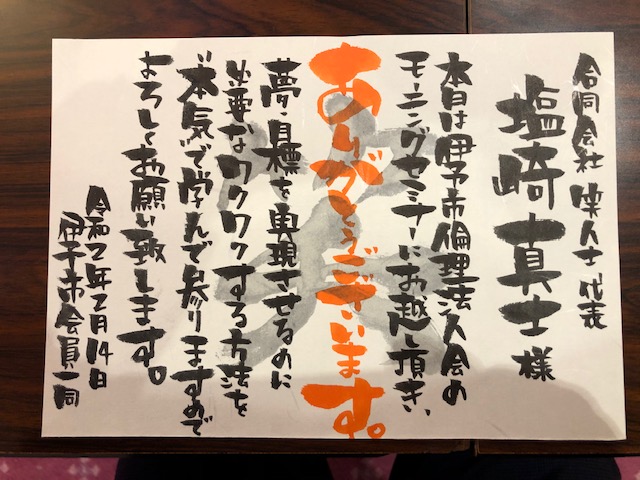 合同会社 楽人士 代表
塩崎真士様
本日は伊予市倫理法人会の
モーニングセミナーにお越し頂き、
ありがとうございます。
夢・目標を実現させるのに
必要なワクワクする方法を
"本気"で学んで参りますので
よろしくお願い致します。
令和2年2月14日
伊予市会員一同